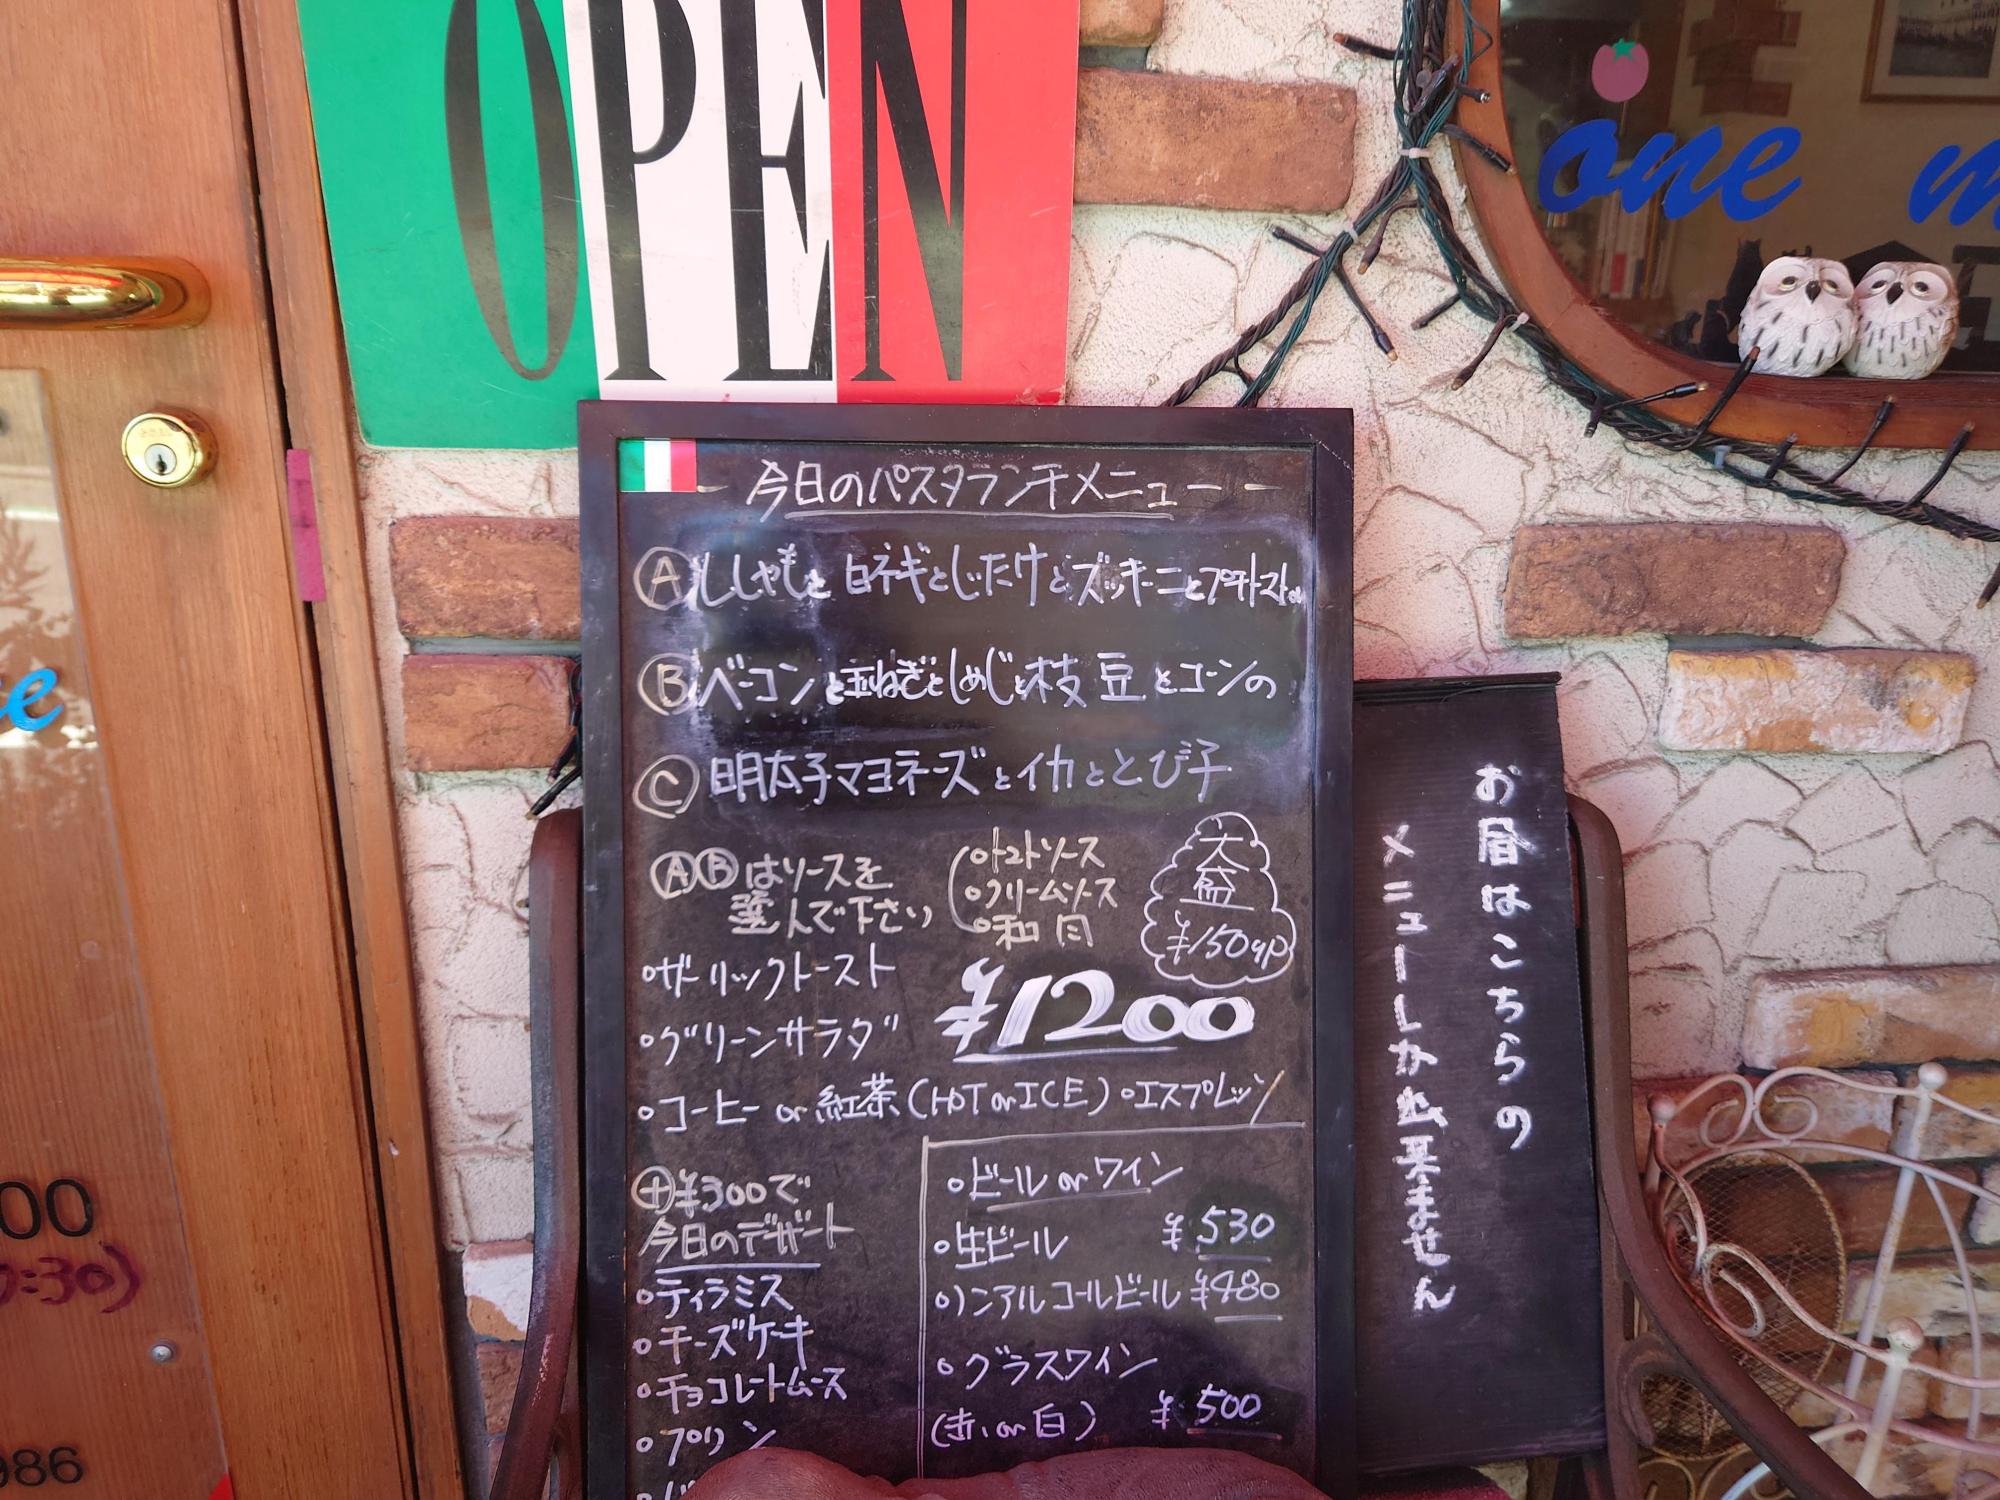 OPEN
one m
今日のパスタランチメニュー
Ⓐ ししゃもと白ネギとしいたけとズッキーニとプチトマトの
Ⓑ ベーコンと玉ねぎとしめじと枝豆とコーンの
Ⓒ 明太子マヨネーズとイカととび子
ⒶⒷはソースを
選んで下さい
・トマトソース
・クリームソース
・和風
大盛
¥150up
・ガーリックトースト
・グリーンサラダ
¥1200
・コーヒー or 紅茶 (HOT or ICE) ・エスプレッソ
⊕¥300で
今日のデザート
・ティラミス
・チーズケーキ
・チョコレートムース
・プリン
・ビール or ワイン
・生ビール ¥530
・ノンアルコールビール ¥480
・グラスワイン
(赤 or 白) ¥500
お昼はこちらの
メニューしか出来ません
00
:30)
986